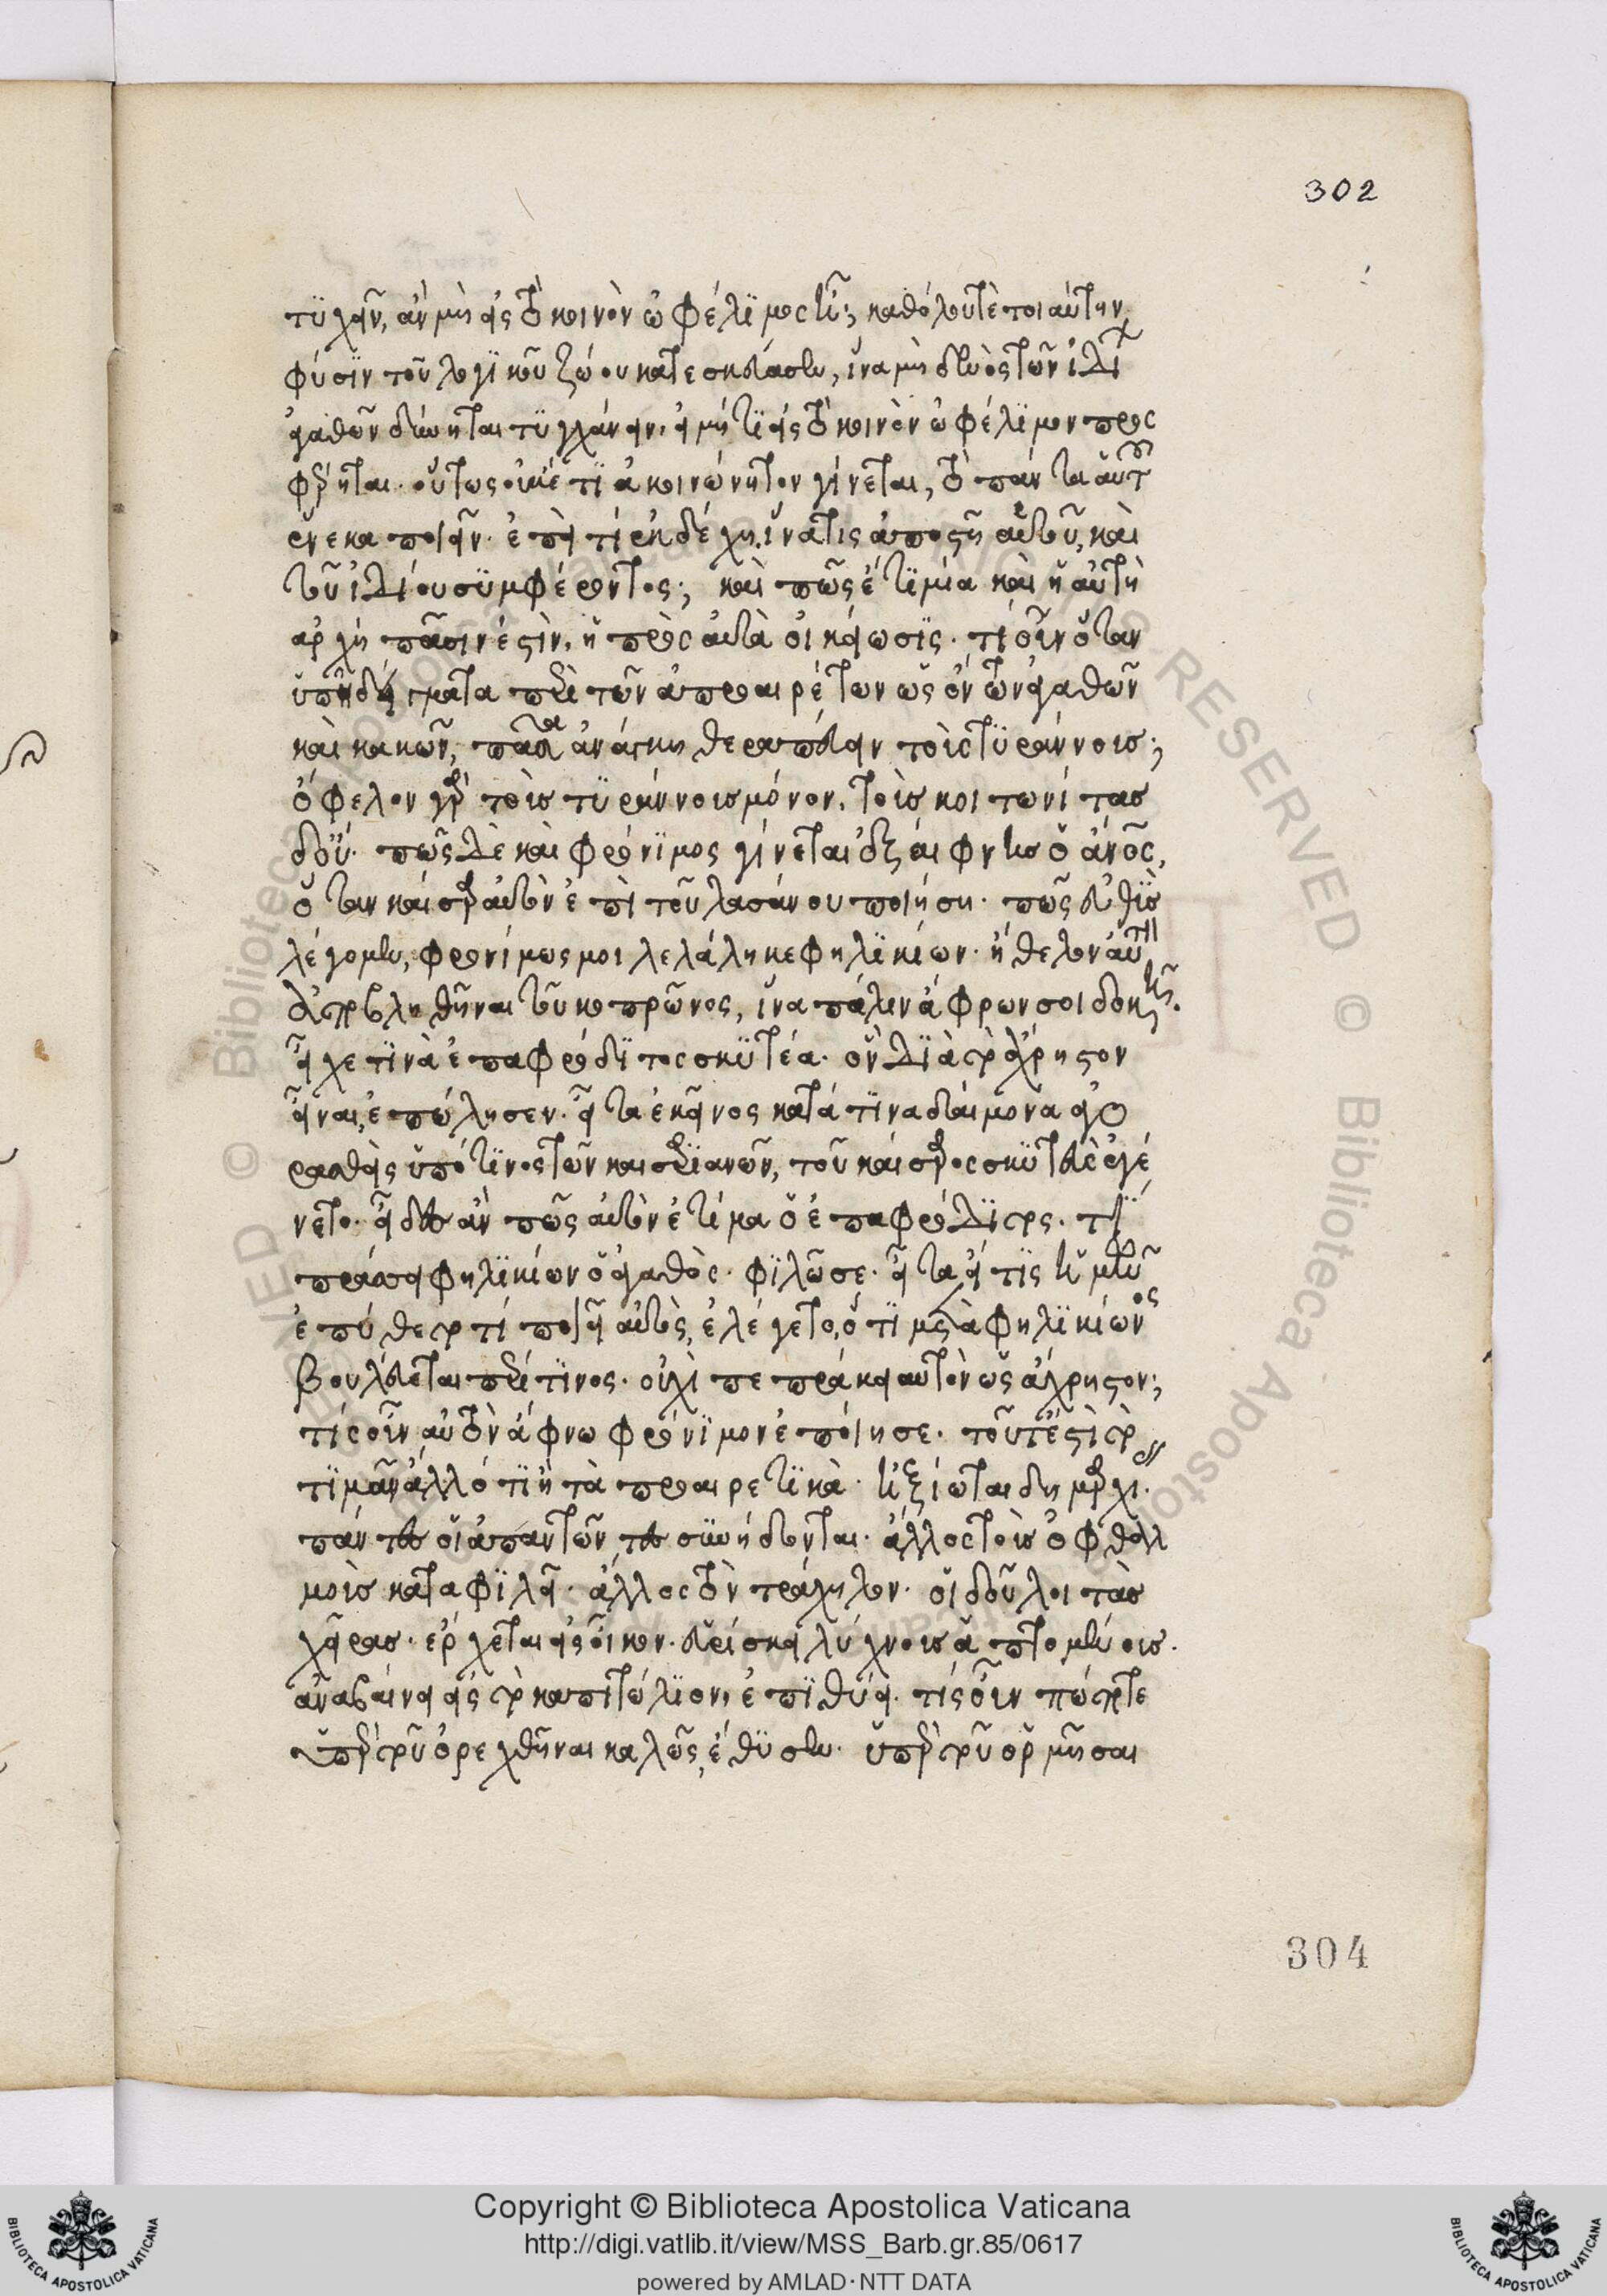 302
τυχεῖν, ἂν μὴ εἰς τὸ κοινὸν ὠφέλιμος ἦν; καθόλου τὲ τοιαύτην
φύσιν τοῦ λογικοῦ ζώου κατεσκεύασεν, ἵνα μηδενὸς τῶν ἰδί
ἀγαθῶν δύνηται τυγχάνειν, εἰ μή τι εἰς τὸ κοινὸν ὠφέλιμον προς
φέρηται. οὕτως οὐκέτι ἀκοινώνητον γίνεται, τὸ πάντα αὑτοῦ
ἕνεκα ποιεῖν. ἐπεὶ τί ἐκδέχῃ, ἵνα τίς ἀποστῇ αὑτοῦ, καὶ
τοῦ ἰδίου συμφέροντος; καὶ πῶς ἔτι μία καὶ ἡ αὐτὴ
ἀρχὴ πᾶσιν ἐστὶν, ἡ πρὸς αὐτὰ οἰκείωσις. τί οὖν ὅταν
ὑπῇ δόγματα περὶ τῶν ἀπροαιρέτων ὡς ὄντων ἀγαθῶν
καὶ κακῶν, πᾶσα ἀνάγκη θεραπεύειν τοὺς τυράννους;
ὄφελον γὰρ τοὺς τυράννους μόνον, τοὺς κοιτωνίτας
δοὔ. πῶς δὲ καὶ φρόνιμος γίνεται ἐξαίφνης ὁ ἄνος,
ὅταν καῖσαρ αὐτὸν ἐπὶ τοῦ λασάνου ποιήσῃ. πῶς εὐθὺς
λέγομεν, φρονίμως μοι λελάληκε φηλικίων. ἤθελον αὐτὸν
ἀποβληθῆναι τοῦ κοπρῶνος, ἵνα πάλιν ἄφρων σοι δοκῇ.
εἶχε τινὰ ἐπαφρόδιτος σκυτέα. ὃν διὰ τὸ ἄχρηστον
εἶναι, ἐπώλησεν. εἶτα ἐκεῖνος κατά τινα δαίμονα ἀγο
ρασθεὶς ὑπό τινος τῶν καισαριανῶν, τοῦ καίσαρος σκυτεὺς ἐγέ
νετο. εἶδες ἂν πῶς αὐτὸν ἐτίμα ὁ ἐπαφρόδιτος. τί
πράσσει φηλικίων ὁ ἀγαθὸς. φιλῶ σε. εἶτα εἴ τις ἡμῶν
ἐπύθετο τί ποιεῖ αὐτὸς, ἐλέγετο, ὅτι μετὰ φηλικίωνος
βουλεύεται περί τινος. οὐχὶ πεπράκει αὐτὸν ὡς ἄχρηστον;
τίς οὖν αὐτὸν ἄφνω φρόνιμον ἐποίησε. τοῦτ' ἔστι τὸ
τιμᾶν ἄλλό τι ἢ τὰ προαιρετικά. ἠξίωται δημαρχίας.
πάντες οἱ ἀπαντῶντες συνήδονται. ἄλλος τοὺς ὀφθαλ
μοὺς καταφιλεῖ. ἄλλος τὸν τράχηλον. οἱ δοῦλοι τὰς
χεῖρας. ἔρχεται εἰς οἶκον. εὑρίσκει λύχνους ἁπτομένους.
ἀναβαίνει εἰς τὸ καπιτώλιον, ἐπιθύει. τίς οὖν πώποτε
ὑπὲρ τοῦ ὀρεχθῆναι καλῶς, ἔθυσεν. ὑπὲρ τοῦ ὁρμῆσαι
304
Copyright © Biblioteca Apostolica Vaticana
http://digi.vatlib.it/view/MSS_Barb.gr.85/0617
powered by AMLAD·NTT DATA